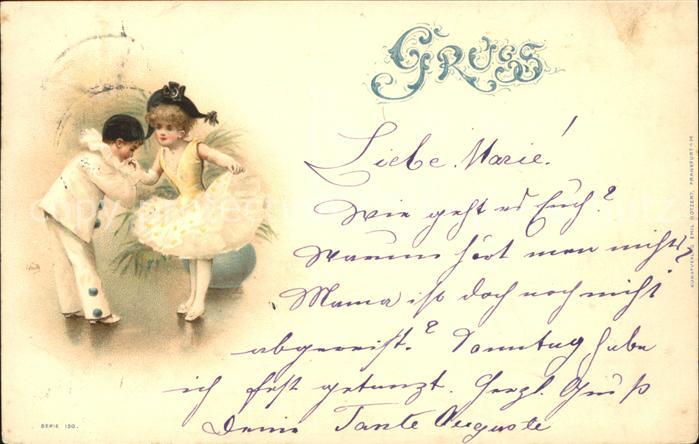 GRUSS
Liebe Marie!
Wie geht es Euch?
Warum hört man nichts?
Mama ist doch noch nicht
abgereist? Sonntag habe
ich fest getanzt. Herzl. Gruß
Deine Tante Auguste
SERIE 130.